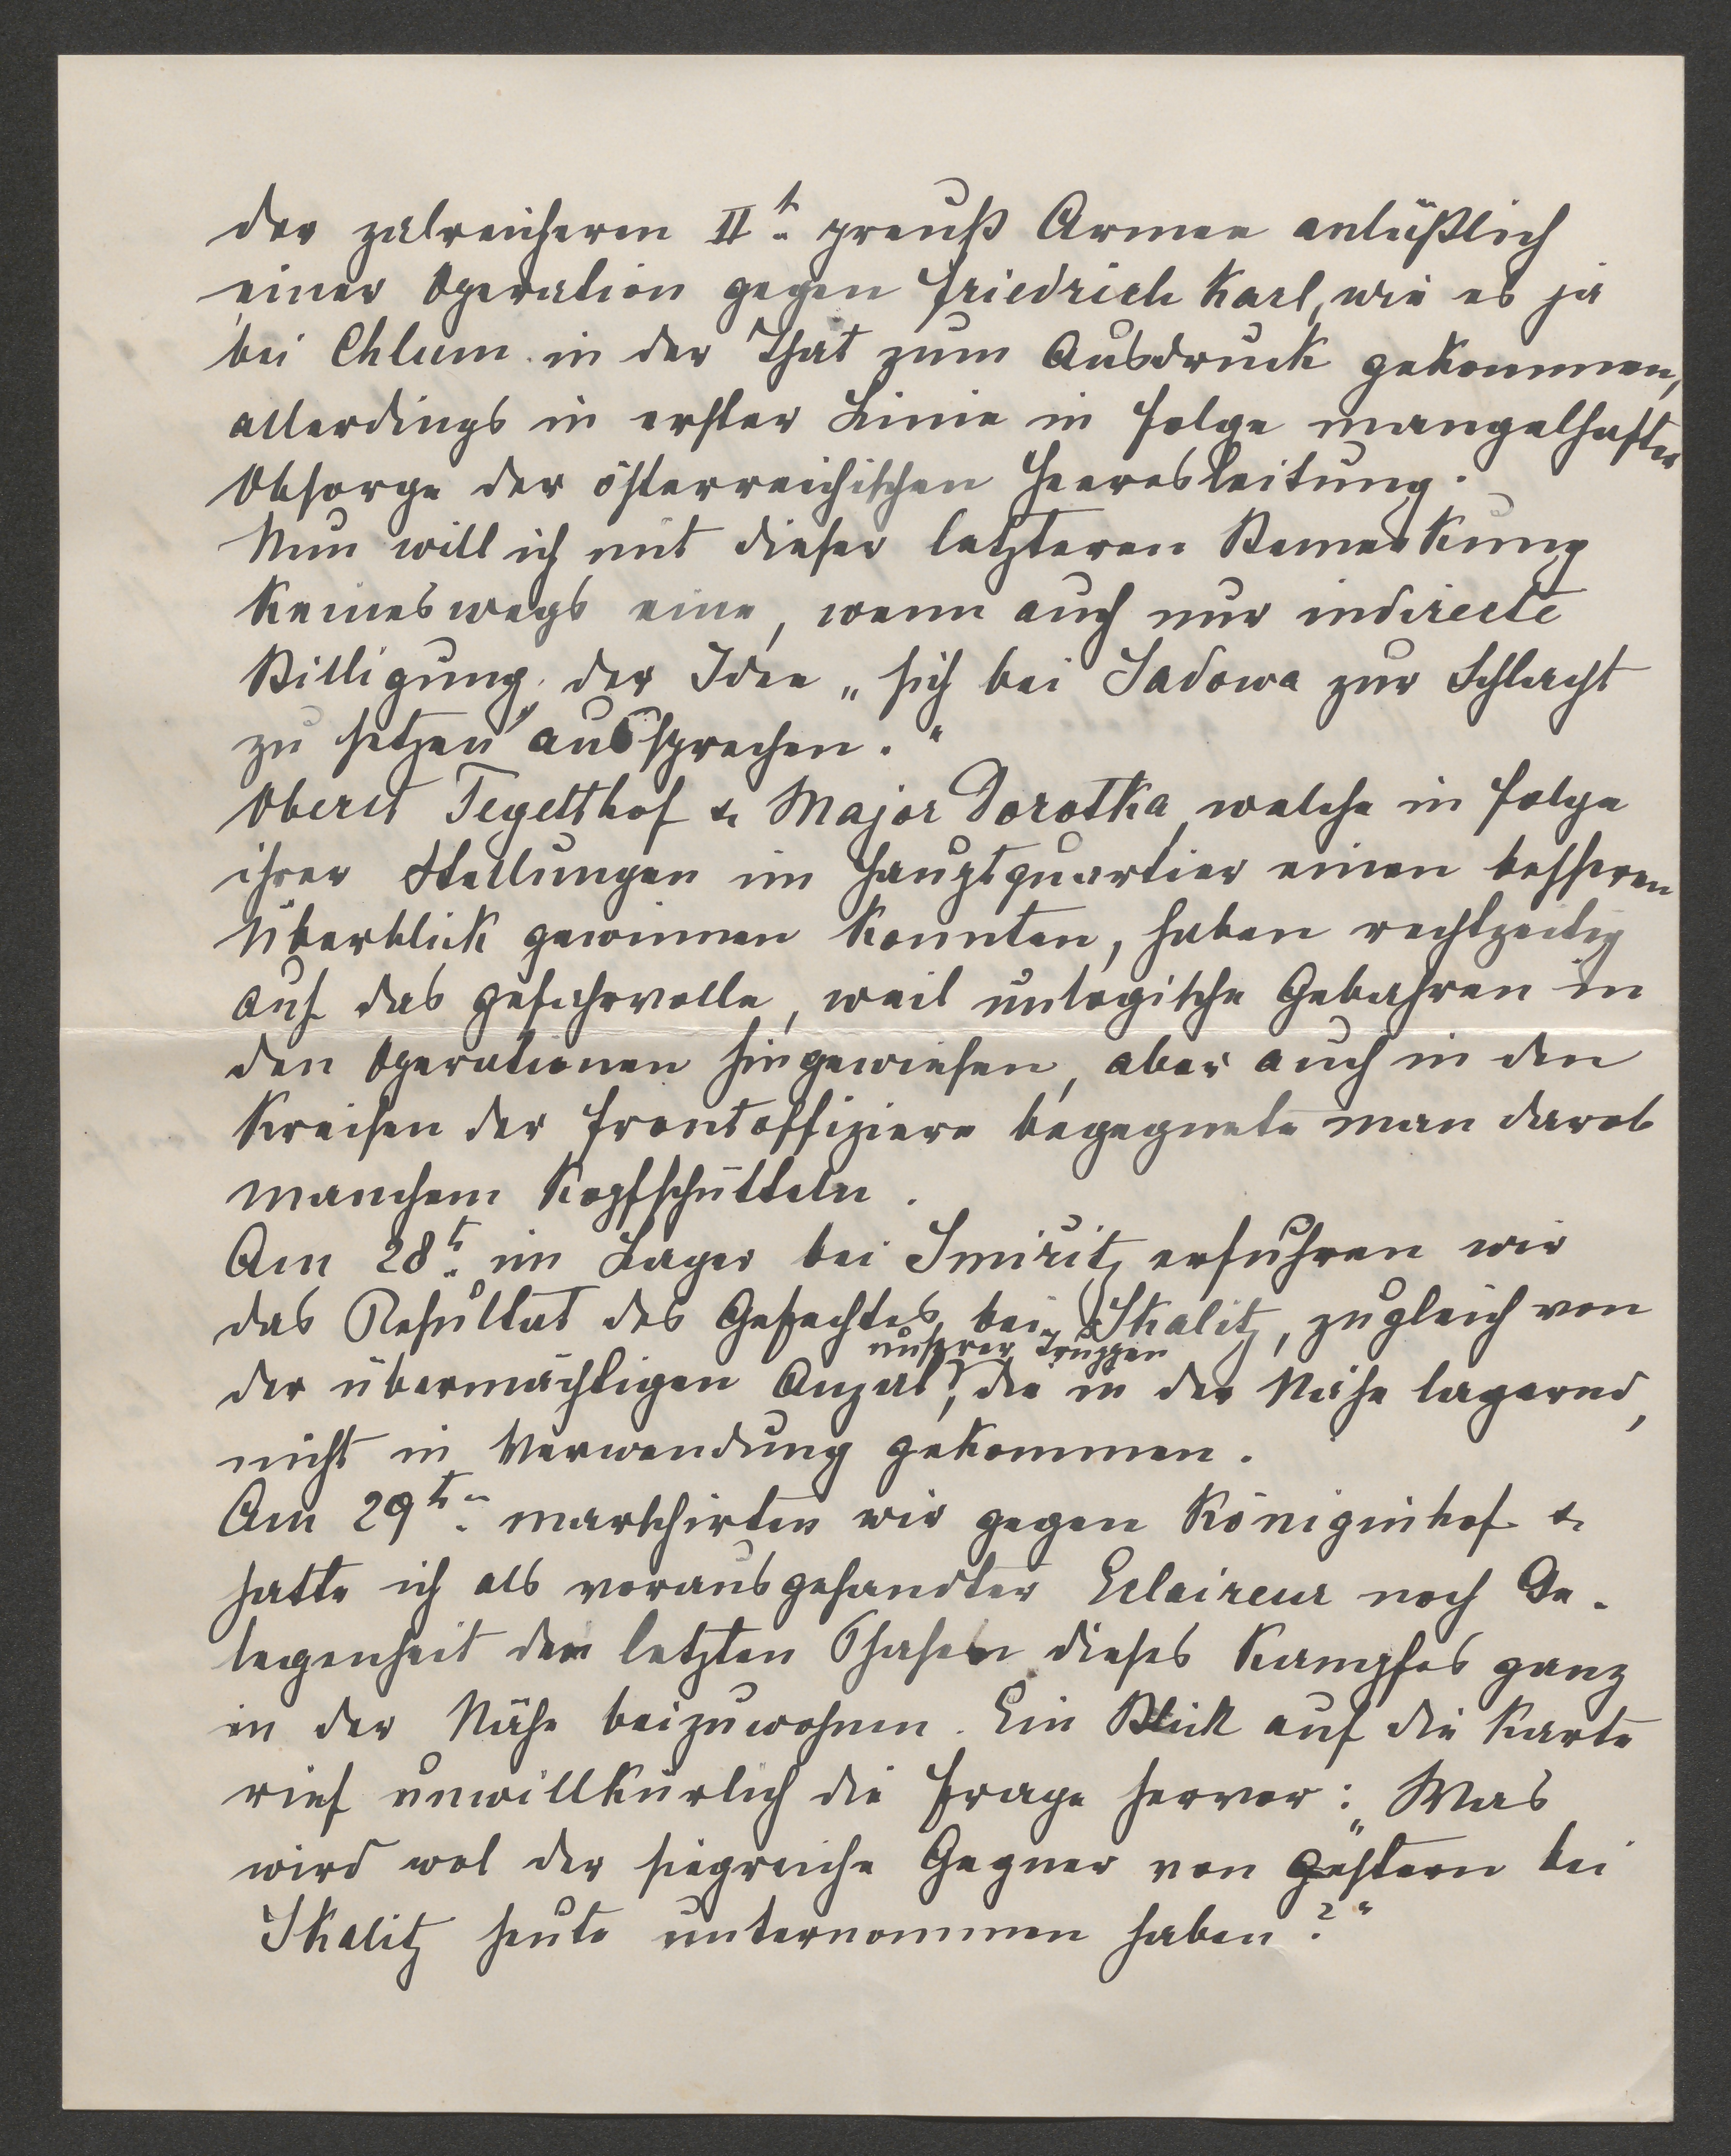 der zalreicheren IIt. preuß Armee anläßlich
einer Operation gegen Friedrich Karl, wie es ja
bei Chlum in der That zum Ausdruck gekommen,
allerdings in erster Linie in Folge mangelhafter
Obsorge der österreichischen Heeresleitung.
Nun will ich mit dieser letzteren Bemerkung
keineswegs eine, wenn auch nur indirecte
Billigung der Idee „sich bei Sadowa zur Schlacht
zu setzen" aussprechen."
Oberst Tegetthof & Major Dorotka, welche in Folge
ihrer Stellungen im Hauptquartier einen besseren
Überblick gewinnen konnten, haben rechtzeitig
auf das gefahrvolle, weil unlogische Gebahren in
den Operationen hingewiesen, aber auch in den
Kreisen der Frontoffiziere begegnete man darob
manchem Kopfschütteln.
Am 28t. im Lager bei Smiřitz erfuhren wir
das Resultat des Gefechtes bei Skalitz, zugleich von
der übermächtigen Anzal unserer Truppen, die in der Nähe lagernd,
nicht in Verwendung gekommen.
Am 29t. marschirten wir gegen Königinhof &
hatte ich als vorausgesandter Eclaireur noch Ge-
legenheit den letzten Phasen dieses Kampfes ganz
in der Nähe beizuwohnen. Ein Blick auf die Karte
rief unwillkürlich die Frage hervor: „Was
wird wol der siegreiche Gegner von gestern bei
Skalitz heute unternommen haben?"